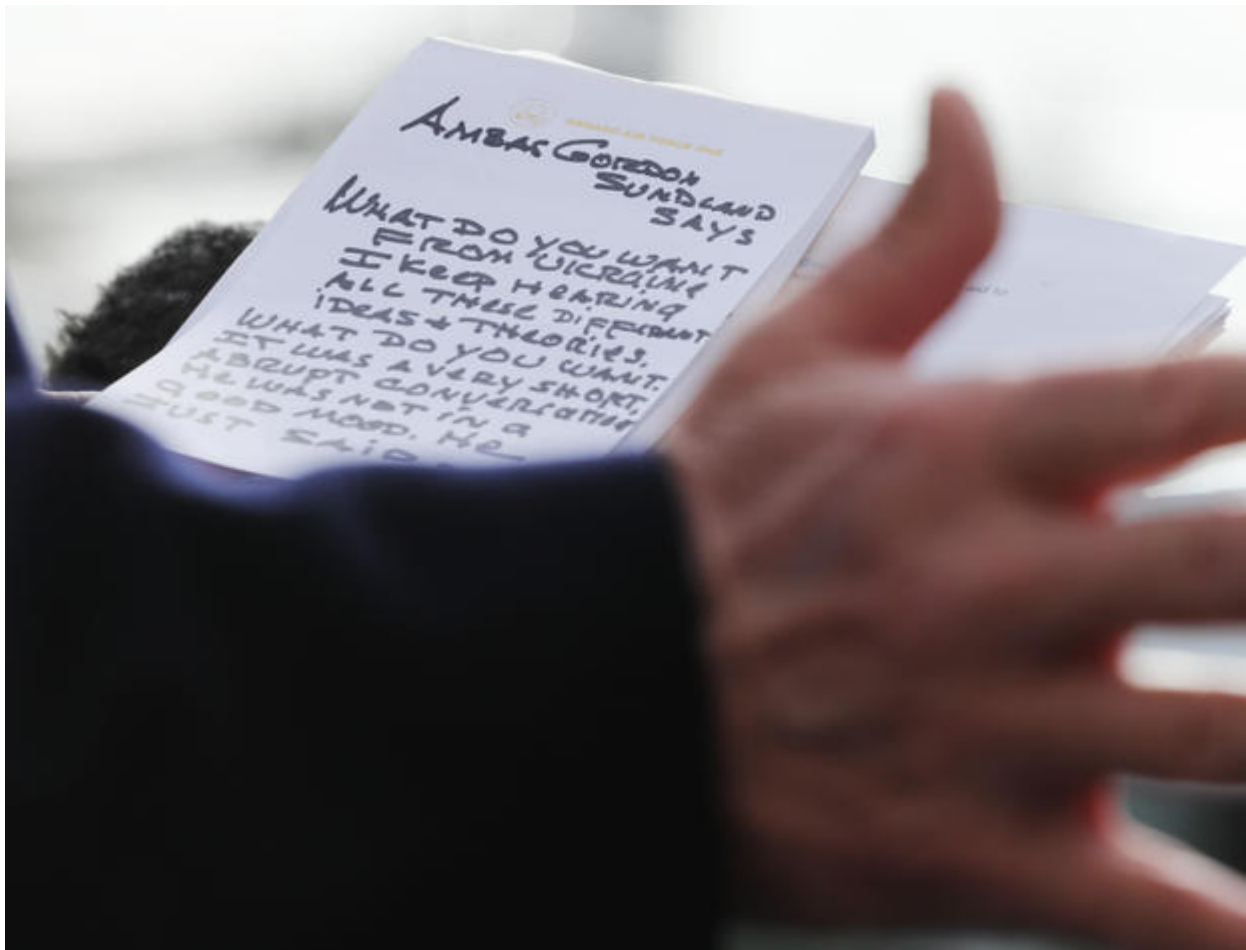 ABOARD AIR FORCE ONE
AMBAS GORDON
SUNDLAND
SAYS
WHAT DO YOU WANT
FROM UKRAINE
I KEEP HEARING
ALL THESE DIFFERENT
IDEAS & THEORIES.
WHAT DO YOU WANT.
IT WAS A VERY SHORT,
ABRUPT CONVERSATION
HE WAS NOT IN A
GOOD MOOD. HE
JUST SAID